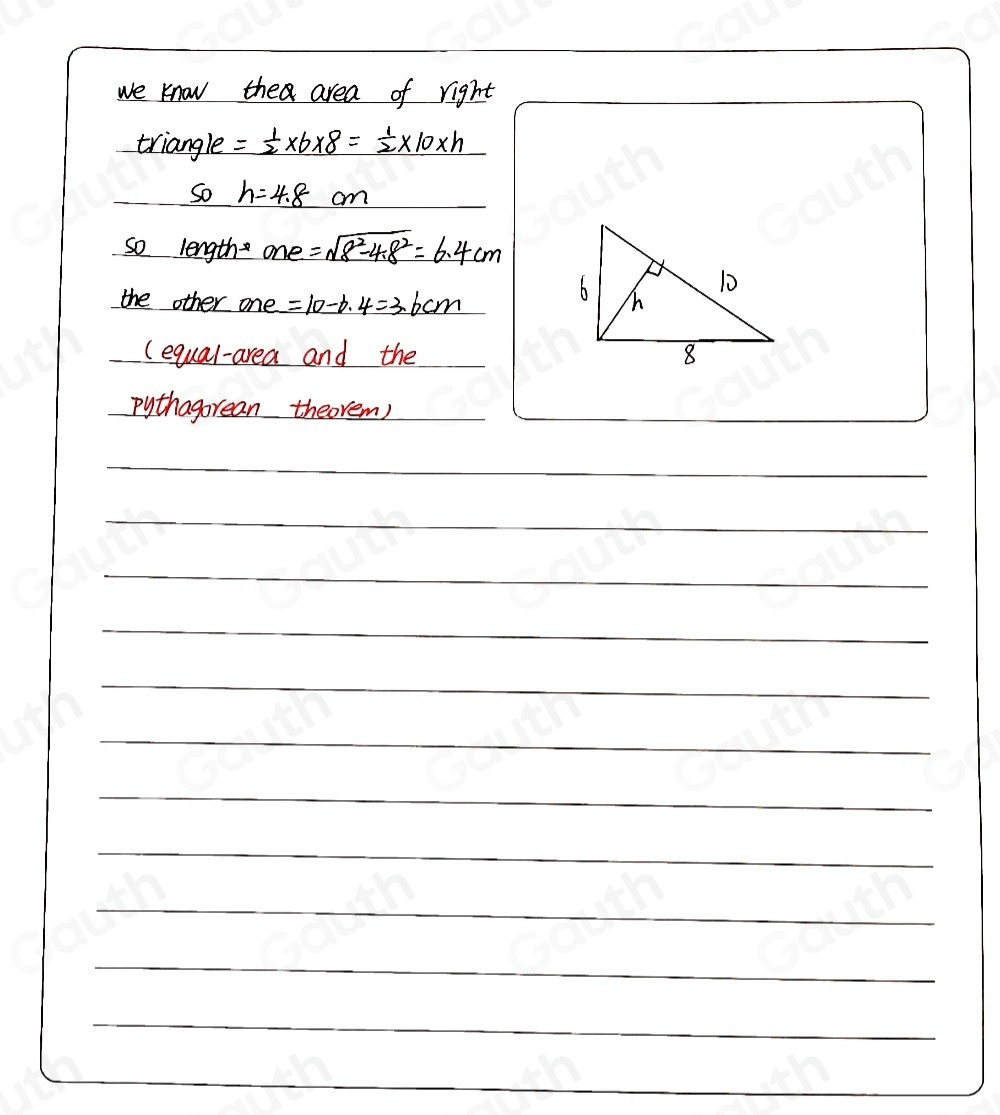 we know thea area of right
triangle = 1/2 × 6 × 8 = 1/2 × 10 × h
so h = 4.8 cm
so length one = √8²-4.8² = 6.4 cm
the other one = 10 - 6.4 = 3.6 cm
(equal-area and the
pythagorean theorem)
6
h
10
8
Gauth